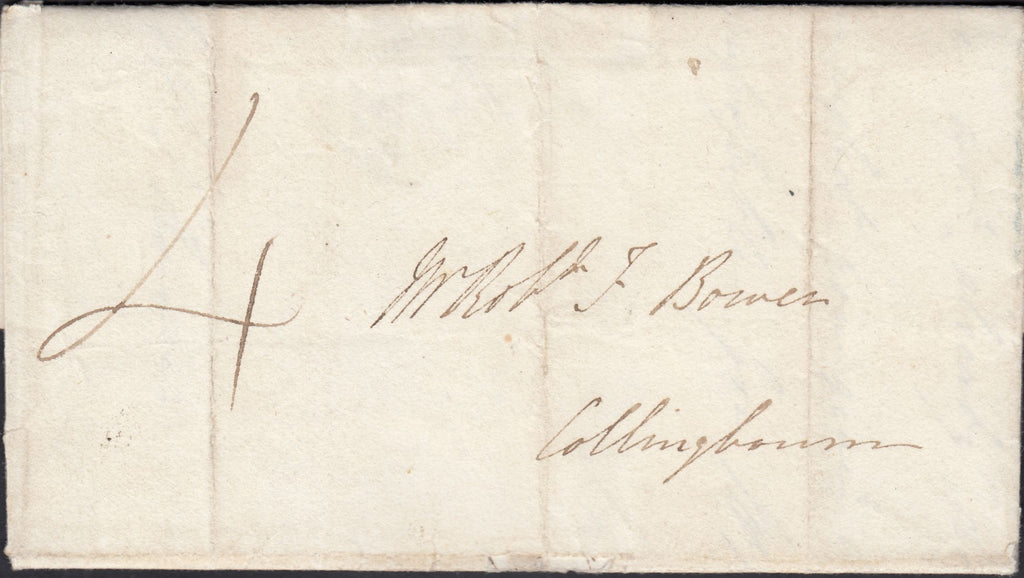 4
Mr Robt F Bowen
Collingbourn